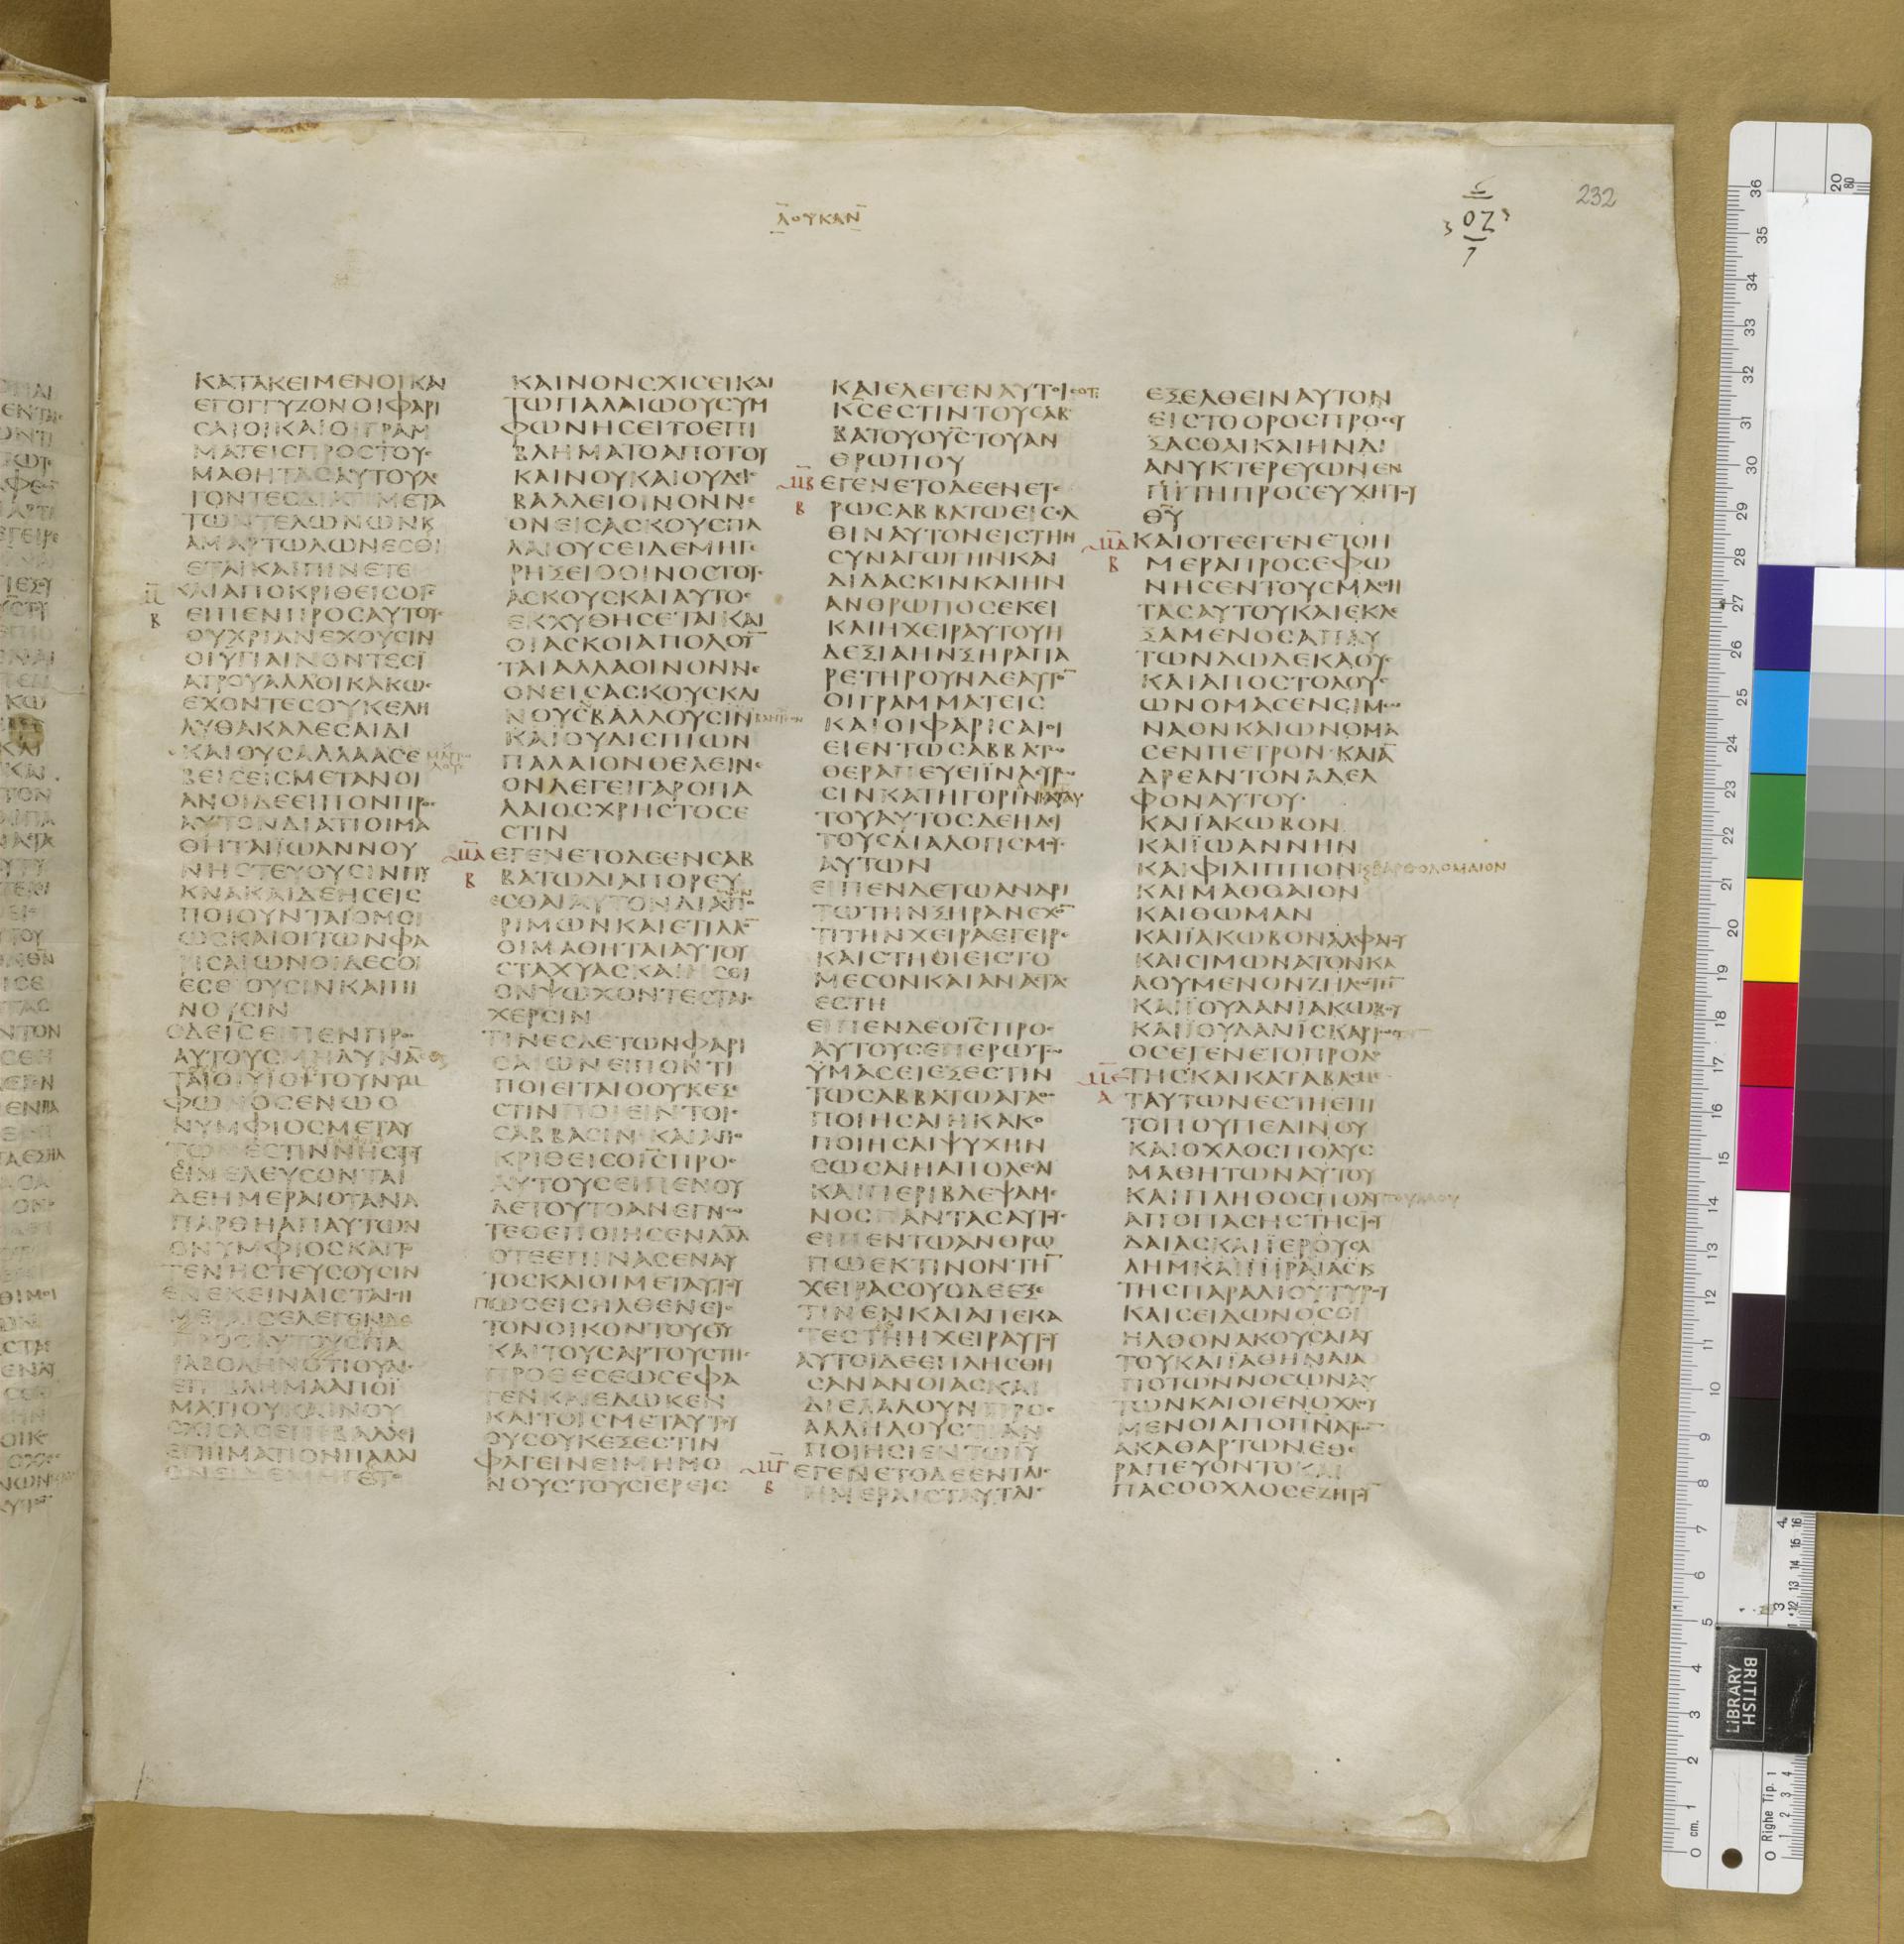 ΛΟΥΚΑΝ
232
ΟΖ
ΚΑΤΑΚΕΙΜΕΝΟΙ ΚΑΙ
ΕΓΟΓΓΥΖΟΝ ΟΙ ΦΑΡΙ
ΣΑΙΟΙ ΚΑΙ ΟΙ ΓΡΑΜ
ΜΑΤΕΙΣ ΠΡΟΣ ΤΟΥΣ
ΜΑΘΗΤΑΣ ΑΥΤΟΥ ΛΕ
ΓΟΝΤΕΣ ΔΙΑ ΤΙ ΜΕΤΑ
ΤΩΝ ΤΕΛΩΝΩΝ Κ
ΑΜΑΡΤΩΛΩΝ ΕΣΘΙ
ΕΤΑΙ ΚΑΙ ΠΙΝΕΤΕ
ΚΑΙ ΑΠΟΚΡΙΘΕΙΣ Ο ΙΣ
Β
ΕΙΠΕΝ ΠΡΟΣ ΑΥΤΟΥΣ
ΟΥ ΧΡΙΑΝ ΕΧΟΥΣΙΝ
ΟΙ ΥΓΙΑΙΝΟΝΤΕΣ Ϊ
ΑΤΡΟΥ ΑΛΛ ΟΙ ΚΑΚΩΣ
ΕΧΟΝΤΕΣ ΟΥΚ ΕΛΗ
ΛΥΘΑ ΚΑΛΕΣΑΙ ΔΙ
ΚΑΙΟΥΣ ΑΛΛΑ ΑΣΕ
ΒΕΙΣ ΕΙΣ ΜΕΤΑΝΟΙ
ΑΝ ΟΙ ΔΕ ΕΙΠΟΝ ΠΡΟΣ
ΑΥΤΟΝ ΔΙΑ ΤΙ ΟΙ ΜΑ
ΘΗΤΑΙ ΪΩΑΝΝΟΥ
ΝΗΣΤΕΥΟΥΣΙΝ ΠΥ
ΚΝΑ ΚΑΙ ΔΕΗΣΕΙΣ
ΠΟΙΟΥΝΤΑΙ ΟΜΟΙ
ΩΣ ΚΑΙ ΟΙ ΤΩΝ ΦΑ
ΡΙΣΑΙΩΝ ΟΙ ΔΕ ΣΟΙ
ΕΣΘΙΟΥΣΙΝ ΚΑΙ ΠΙ
ΝΟΥΣΙΝ
Ο ΔΕ ΙΣ ΕΙΠΕΝ ΠΡΟΣ
ΑΥΤΟΥΣ ΜΗ ΔΥΝΑΝ
ΤΑΙ ΟΙ ΥΙΟΙ ΤΟΥ ΝΥΜ
ΦΩΝΟΣ ΕΝ Ω Ο
ΝΥΜΦΙΟΣ ΜΕΤ ΑΥ
ΤΩΝ ΕΣΤΙΝ ΝΗΣΤΕΥ
ΕΙΝ ΕΛΕΥΣΟΝΤΑΙ
ΔΕ ΗΜΕΡΑΙ ΟΤΑΝ Α
ΠΑΡΘΗ ΑΠ ΑΥΤΩΝ
Ο ΝΥΜΦΙΟΣ ΚΑΙ ΤΟ
ΤΕ ΝΗΣΤΕΥΣΟΥΣΙΝ
ΕΝ ΕΚΕΙΝΑΙΣ ΤΑΙΣ Η
ΜΕΡΑΙΣ ΕΛΕΓΕΝ ΔΕ
ΠΡΟΣ ΑΥΤΟΥΣ ΠΑ
ΡΑΒΟΛΗΝ ΟΤΙ ΟΥΔΙΣ
ΕΠΙΒΛΗΜΑ ΑΠΟ Ϊ
ΜΑΤΙΟΥ ΚΑΙΝΟΥ
ΣΧΙΣΑΣ ΕΠΙΒΑΛΛΕΙ
ΕΠΙ ΙΜΑΤΙΟΝ ΠΑΛΑΙ
ΟΝ ΕΙ ΔΕ ΜΗΓΕ ΤΟ
ΚΑΙΝΟΝ ΣΧΙΣΕΙ ΚΑΙ
ΤΩ ΠΑΛΑΙΩ ΟΥ ΣΥΜ
ΦΩΝΗΣΕΙ ΤΟ ΕΠΙ
ΒΛΗΜΑ ΤΟ ΑΠΟ ΤΟΥ
ΚΑΙΝΟΥ ΚΑΙ ΟΥΔΙΣ
ΒΑΛΛΕΙ ΟΙΝΟΝ ΝΕ
ΟΝ ΕΙΣ ΑΣΚΟΥΣ ΠΑ
ΛΑΙΟΥΣ ΕΙ ΔΕ ΜΗΓΕ
ΡΗΞΕΙ Ο ΟΙΝΟΣ ΤΟΥΣ
ΑΣΚΟΥΣ ΚΑΙ ΑΥΤΟΣ
ΕΚΧΥΘΗΣΕΤΑΙ ΚΑΙ
ΟΙ ΑΣΚΟΙ ΑΠΟΛΟΥΝ
ΤΑΙ ΑΛΛΑ ΟΙΝΟΝ ΝΕ
ΟΝ ΕΙΣ ΑΣΚΟΥΣ ΚΑΙ
ΝΟΥΣ ΒΑΛΛΟΥΣΙΝ
ΚΑΙ ΟΥΔΙΣ ΠΙΩΝ
ΠΑΛΑΙΟΝ ΘΕΛΕΙ ΝΕ
ΟΝ ΛΕΓΕΙ ΓΑΡ Ο ΠΑ
ΛΑΙΟΣ ΧΡΗΣΤΟΣ Ε
ΣΤΙΝ
ΜΑ ΕΓΕΝΕΤΟ ΔΕ ΕΝ ΣΑΒ
Β ΒΑΤΩ ΔΙΑΠΟΡΕΥ
ΕΣΘΑΙ ΑΥΤΟΝ ΔΙΑ ΣΠΟ
ΡΙΜΩΝ ΚΑΙ ΕΤΙΛΛΟΝ
ΟΙ ΜΑΘΗΤΑΙ ΑΥΤΟΥ
ΣΤΑΧΥΑΣ ΚΑΙ ΗΣΘΙ
ΟΝ ΨΩΧΟΝΤΕΣ ΤΑΙΣ
ΧΕΡΣΙΝ
ΤΙΝΕΣ ΔΕ ΤΩΝ ΦΑΡΙ
ΣΑΙΩΝ ΕΙΠΟΝ ΤΙ
ΠΟΙΕΙΤΑΙ Ο ΟΥΚ ΕΞΕ
ΣΤΙΝ ΠΟΙΕΙΝ ΤΟΙΣ
ΣΑΒΒΑΣΙΝ ΚΑΙ ΑΠΟ
ΚΡΙΘΕΙΣ Ο ΙΣ ΠΡΟΣ
ΑΥΤΟΥΣ ΕΙΠΕΝ ΟΥ
ΔΕ ΤΟΥΤΟ ΑΝΕΓΝΩ
ΤΕ Ο ΕΠΟΙΗΣΕΝ ΔΑΔ
ΟΤΕ ΕΠΙΝΑΣΕΝ ΑΥ
ΤΟΣ ΚΑΙ ΟΙ ΜΕΤ ΑΥΤΟΥ
ΠΩΣ ΕΙΣΗΛΘΕΝ ΕΙΣ
ΤΟΝ ΟΙΚΟΝ ΤΟΥ ΘΥ
ΚΑΙ ΤΟΥΣ ΑΡΤΟΥΣ ΤΗΣ
ΠΡΟΘΕΣΕΩΣ ΕΦΑ
ΓΕΝ ΚΑΙ ΕΔΩΚΕΝ
ΚΑΙ ΤΟΙΣ ΜΕΤ ΑΥΤΟΥ
ΟΥΣ ΟΥΚ ΕΞΕΣΤΙΝ
ΦΑΓΕΙΝ ΕΙ ΜΗ ΜΟ
ΝΟΥΣ ΤΟΥΣ ΙΕΡΕΙΣ
ΚΑΙ ΕΛΕΓΕΝ ΑΥΤΟΙΣ ΟΤΙ
ΚΣ ΕΣΤΙΝ ΤΟΥ ΣΑΒ
ΒΑΤΟΥ Ο ΥΣ ΤΟΥ ΑΝ
ΘΡΩΠΟΥ
ΜΒ ΕΓΕΝΕΤΟ ΔΕ ΕΝ ΕΤΕ
Β ΡΩ ΣΑΒΒΑΤΩ ΕΙΣΕΛ
ΘΙΝ ΑΥΤΟΝ ΕΙΣ ΤΗΝ
ΣΥΝΑΓΩΓΗΝ ΚΑΙ
ΔΙΔΑΣΚΙΝ ΚΑΙ ΗΝ
ΑΝΘΡΩΠΟΣ ΕΚΕΙ
ΚΑΙ Η ΧΕΙΡ ΑΥΤΟΥ Η
ΔΕΞΙΑ ΗΝ ΞΗΡΑ ΠΑ
ΡΕΤΗΡΟΥΝ ΔΕ ΑΥΤΟΝ
ΟΙ ΓΡΑΜΜΑΤΕΙΣ
ΚΑΙ ΟΙ ΦΑΡΙΣΑΙΟΙ
ΕΙ ΕΝ ΤΩ ΣΑΒΒΑΤΩ
ΘΕΡΑΠΕΥΕΙ ΪΝΑ ΕΥΡΩ
ΣΙΝ ΚΑΤΗΓΟΡΙΝ ΑΥ
ΤΟΥ ΑΥΤΟΣ ΔΕ ΗΔΙ
ΤΟΥΣ ΔΙΑΛΟΓΙΣΜΟΥΣ
ΑΥΤΩΝ
ΕΙΠΕΝ ΔΕ ΤΩ ΑΝΔΡΙ
ΤΩ ΤΗΝ ΞΗΡΑΝ ΕΧΟΝ
ΤΙ ΤΗΝ ΧΕΙΡΑ ΕΓΕΙΡΕ
ΚΑΙ ΣΤΗΘΙ ΕΙΣ ΤΟ
ΜΕΣΟΝ ΚΑΙ ΑΝΑΣΤΑΣ
ΕΣΤΗ
ΕΙΠΕΝ ΔΕ Ο ΙΣ ΠΡΟΣ
ΑΥΤΟΥΣ ΕΠΕΡΩΤΩ
ΫΜΑΣ ΕΙ ΕΞΕΣΤΙΝ
ΤΩ ΣΑΒΒΑΤΩ ΑΓΑΘΟ
ΠΟΙΗΣΑΙ Η ΚΑΚΟ
ΠΟΙΗΣΑΙ ΨΥΧΗΝ
ΣΩΣΑΙ Η ΑΠΟΛΕΣΑΙ
ΚΑΙ ΠΕΡΙΒΛΕΨΑΜΕ
ΝΟΣ ΠΑΝΤΑΣ ΑΥΤΟΥΣ
ΕΙΠΕΝ ΤΩ ΑΝΘΡΩ
ΠΩ ΕΚΤΙΝΟΝ ΤΗΝ
ΧΕΙΡΑ ΣΟΥ Ο ΔΕ ΕΞΕ
ΤΙΝΕΝ ΚΑΙ ΑΠΕΚΑ
ΤΕΣΤΗ Η ΧΕΙΡ ΑΥΤΟΥ
ΑΥΤΟΙ ΔΕ ΕΠΛΗΣΘΗ
ΣΑΝ ΑΝΟΙΑΣ ΚΑΙ
ΔΙΕΛΑΛΟΥΝ ΠΡΟΣ
ΑΛΛΗΛΟΥΣ ΤΙ ΑΝ
ΠΟΙΗΣΙΕΝ ΤΩ ΙΥ
ΜΓ ΕΓΕΝΕΤΟ ΔΕ ΕΝ ΤΑΙΣ
Β ΗΜΕΡΑΙΣ ΤΑΥΤΑΙΣ
ΕΞΕΛΘΕΙΝ ΑΥΤΟΝ
ΕΙΣ ΤΟ ΟΡΟΣ ΠΡΟΣΕΥ
ΞΑΣΘΑΙ ΚΑΙ ΗΝ ΔΙ
ΑΝΥΚΤΕΡΕΥΩΝ ΕΝ
ΤΗ ΠΡΟΣΕΥΧΗ ΤΟΥ
ΘΥ
ΜΔ ΚΑΙ ΟΤΕ ΕΓΕΝΕΤΟ Η
Β ΜΕΡΑ ΠΡΟΣΕΦΩ
ΝΗΣΕΝ ΤΟΥΣ ΜΑΘΗ
ΤΑΣ ΑΥΤΟΥ ΚΑΙ ΕΚΛΕ
ΞΑΜΕΝΟΣ ΑΠ ΑΥ
ΤΩΝ ΔΩΔΕΚΑ ΟΥΣ
ΚΑΙ ΑΠΟΣΤΟΛΟΥΣ
ΩΝΟΜΑΣΕΝ ΣΙΜΩ
ΝΑ ΟΝ ΚΑΙ ΩΝΟΜΑ
ΣΕΝ ΠΕΤΡΟΝ ΚΑΙ ΑΝ
ΔΡΕΑΝ ΤΟΝ ΑΔΕΛ
ΦΟΝ ΑΥΤΟΥ
ΚΑΙ ΪΑΚΩΒΟΝ
ΚΑΙ ΪΩΑΝΝΗΝ
ΚΑΙ ΦΙΛΙΠΠΟΝ Κ ΒΑΡΘΟΛΟΜΑΙΟΝ
ΚΑΙ ΜΑΘΘΑΙΟΝ
ΚΑΙ ΘΩΜΑΝ
ΚΑΙ ΪΑΚΩΒΟΝ ΑΛΦΑΙΟΥ
ΚΑΙ ΣΙΜΩΝΑ ΤΟΝ ΚΑ
ΛΟΥΜΕΝΟΝ ΖΗΛΩΤΗΝ
ΚΑΙ ΪΟΥΔΑΝ ΪΑΚΩΒΟΥ
ΚΑΙ ΪΟΥΔΑΝ ΪΣΚΑΡΙΩΘ
ΟΣ ΕΓΕΝΕΤΟ ΠΡΟΔΟ
ΜΕ ΤΗΣ ΚΑΙ ΚΑΤΑΒΑΣ ΜΕ
Α Τ ΑΥΤΩΝ ΕΣΤΗ ΕΠΙ
ΤΟΠΟΥ ΠΕΔΙΝΟΥ
ΚΑΙ ΟΧΛΟΣ ΠΟΛΥΣ
ΜΑΘΗΤΩΝ ΑΥΤΟΥ
ΚΑΙ ΠΛΗΘΟΣ ΠΟΛΥ ΤΟΥ ΛΑΟΥ
ΑΠΟ ΠΑΣΗΣ ΤΗΣ ΙΟΥ
ΔΑΙΑΣ ΚΑΙ ΪΕΡΟΥΣΑ
ΛΗΜ ΚΑΙ ΠΙΡΑΙΑΣ Κ
ΤΗΣ ΠΑΡΑΛΙΟΥ ΤΥΡΟΥ
ΚΑΙ ΣΕΙΔΩΝΟΣ ΟΙ
ΗΛΘΟΝ ΑΚΟΥΣΑΙ ΑΥ
ΤΟΥ ΚΑΙ ΪΑΘΗΝΑΙ Α
ΠΟ ΤΩΝ ΝΟΣΩΝ ΑΥ
ΤΩΝ ΚΑΙ ΟΙ ΕΝΟΧΛΟΥ
ΜΕΝΟΙ ΑΠΟ ΠΝΑΤΩΝ
ΑΚΑΘΑΡΤΩΝ ΕΘΕ
ΡΑΠΕΥΟΝΤΟ ΚΑΙ
ΠΑΣ Ο ΟΧΛΟΣ ΕΖΗΤΟΥΝ
BRITISH
LIBRARY